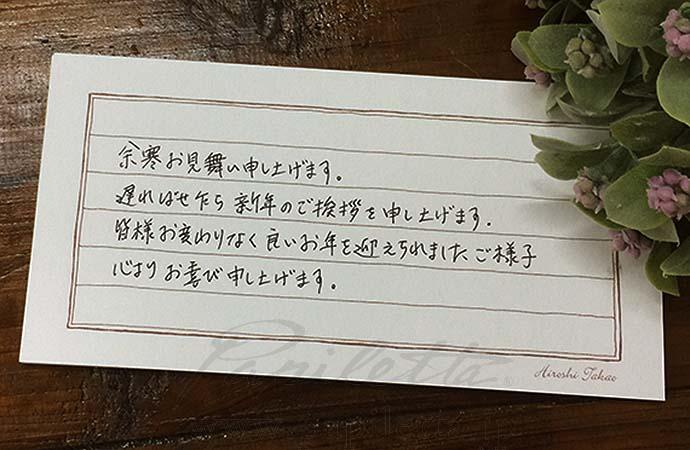 余寒お見舞い申し上げます。
遅ればせ乍ら 新年のご挨拶を申し上げます.
皆様お変わりなく良いお年を迎えられましたご様子
心より お喜び申し上げます。
Hiroshi Takao
Papilotta